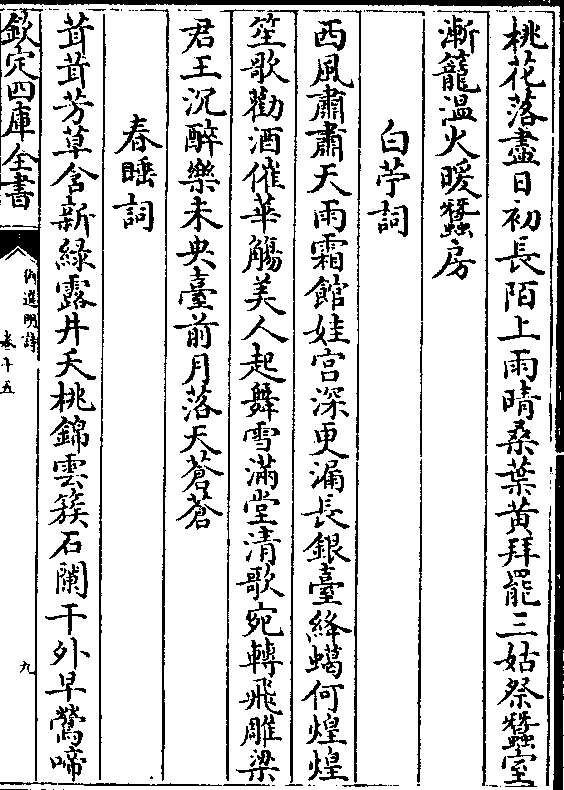 桃花落盡日初長陌上雨晴桑葉黃拜罷三姑祭蠶室
漸籠温火暖蠶房
白苧詞
西風肅肅天雨霜館娃宮深更漏長銀臺絳蠟何煌煌
笙歌勸酒催華觴美人起舞雪滿堂清歌宛轉飛雕梁
君王沉醉樂未央臺前月落天蒼蒼
春睡詞
茸茸芳草含新緑露井夭桃錦雲簇石闌干外早鶯啼
欽定四庫全書
御選明詩
卷十五
九